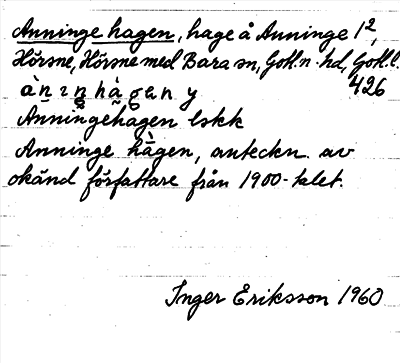 Anninge hagen, hage å Anninge 1²,
Hörsne, Hörsne med Bara sn, Gotl. n. hd, Gotl. l.
426
Anningehagen lskk
Anninge hagen, anteckn. av
okänd författare från 1900-talet.
Inger Eriksson 1960